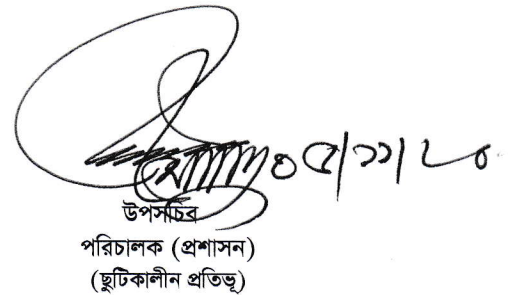 ০৫/১১/২০
উপসচিব
পরিচালক (প্রশাসন)
(ছুটিকালীন প্রতিভূ)